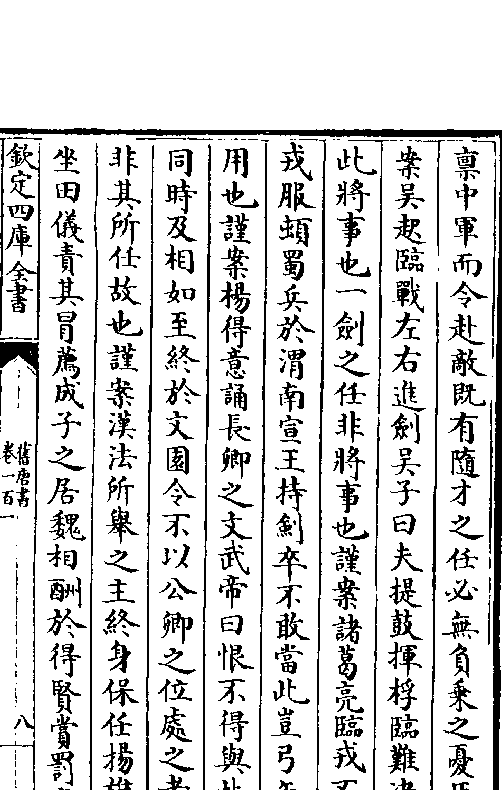 禀中軍而令赴敵既有隨才之任必無負乗之憂
案吴起臨戰左右進劍吴子曰夫提鼓揮桴臨難
此將事也一劍之任非將事也謹案諸葛亮臨戎
戎服蜵蜀兵於渭南宣王持劍卒不敢當此豈弓
用也謹案楊得意誦長卿之文武帝曰恨不得與
同時及相如至終於文園令不以公卿之位處之
非其所任故也謹案漢法所舉之主終身保任揚
坐田儀責其冒薦成子之居魏相酬於得賢賞罰
欽定四庫全書
舊唐書
卷一百一
八